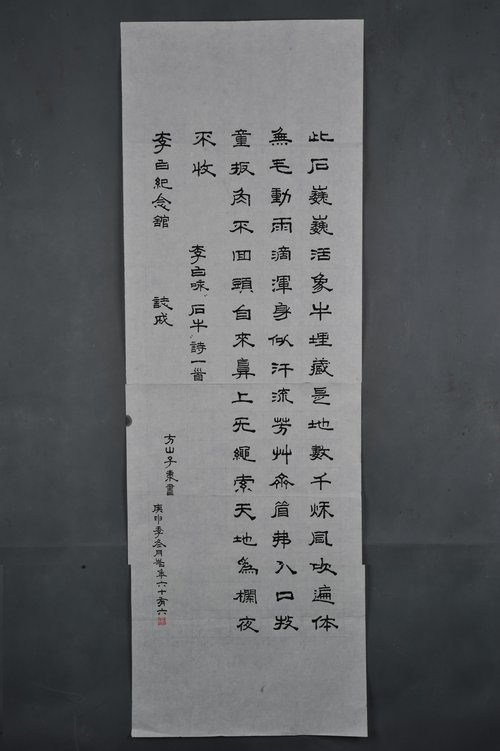 此石巍巍活象牛埋藏是地數千秋風吹遍体
無毛動雨滴渾身似汗流芳艸齊眉弗入口牧
童扳角不回頭自來鼻上无繩索天地為欄夜
不收
李白咏石牛詩一首
李白紀念舘 誌成
方山子 書
庚申季冬月 年六十有六